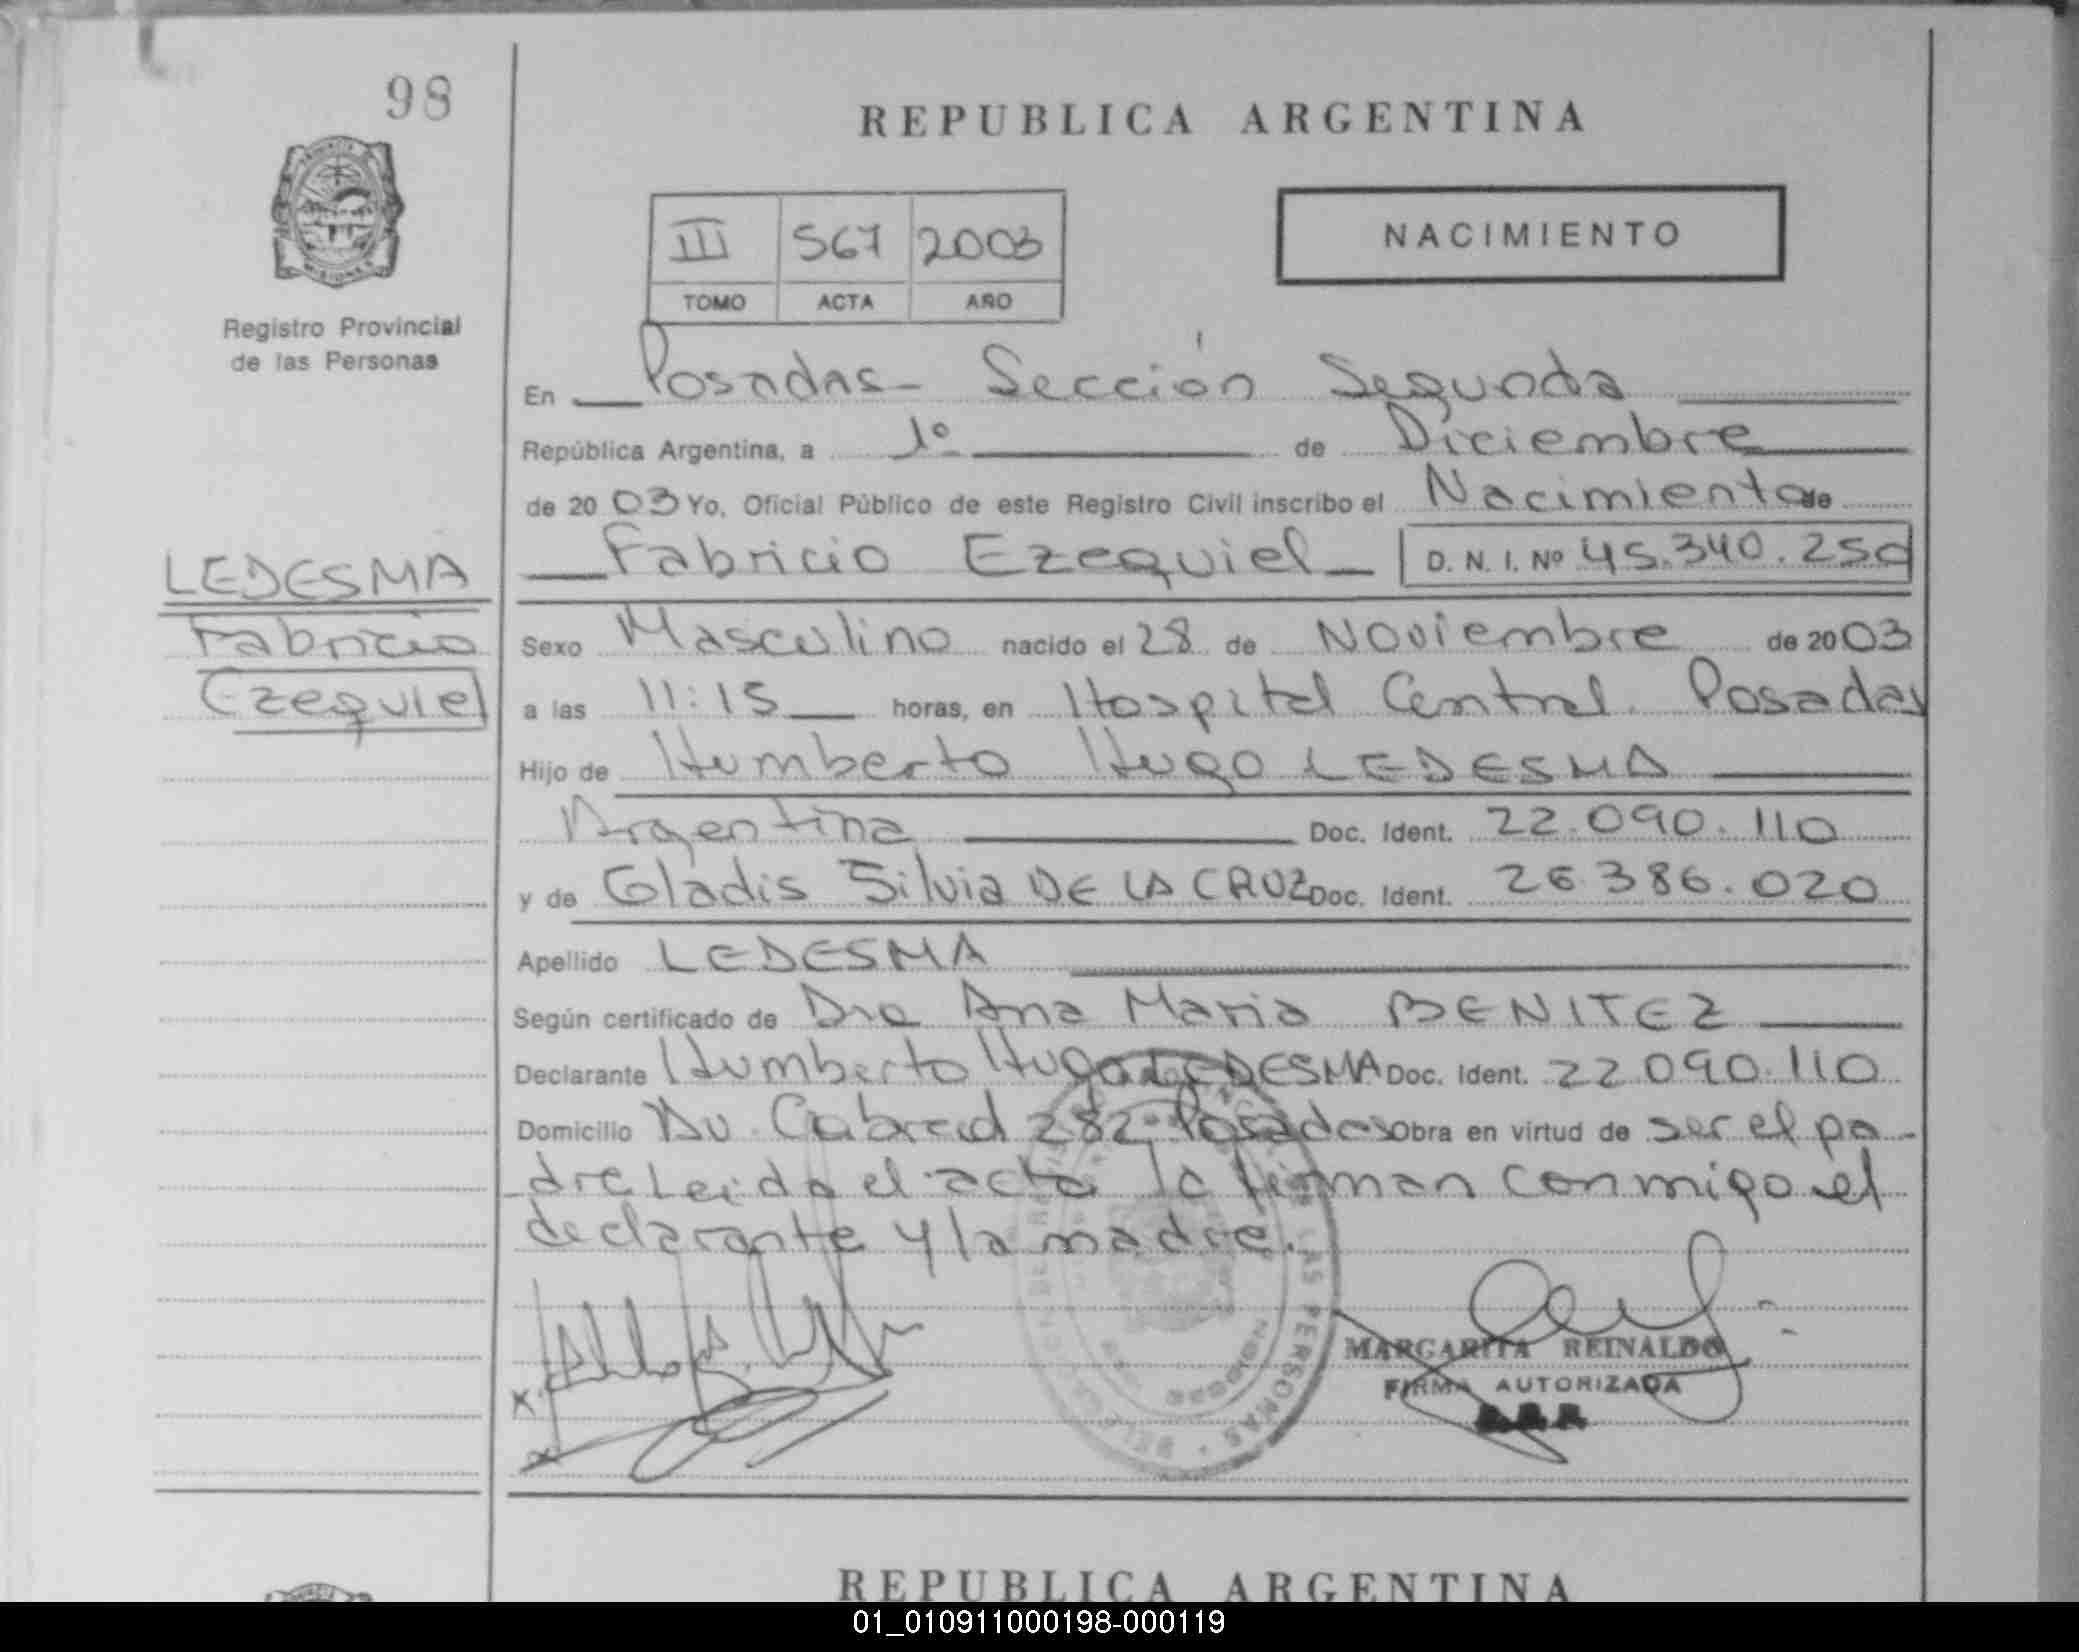 98
REPUBLICA ARGENTINA
III 567 2003
TOMO ACTA AÑO
NACIMIENTO
Registro Provincial
de las Personas
En Posadas - Sección Segunda
República Argentina, a 1º de Diciembre
de 2003 Yo, Oficial Público de este Registro Civil inscribo el Nacimiento de
Fabricio Ezequiel D. N. I. Nº 45.340.250
LEDESMA
Fabricio
Ezequiel
Sexo Masculino nacido el 28 de Noviembre de 2003
a las 11:15 horas, en Hospital Central. Posadas
Hijo de Humberto Hugo LEDESMA
Argentina Doc. Ident. 22.090.110
y de Gladis Silvia DE LA CRUZ Doc. Ident. 26.386.020
Apellido LEDESMA
Según certificado de Dra Ana Maria BENITEZ
Declarante Humberto Hugo LEDESMA Doc. Ident. 22.090.110
Domicilio Av. Cabred 282 Posadas Obra en virtud de ser el pa-
dre Leida el acta la firman conmigo el
declarante y la madre.
MARGARITA REINALDO
FIRMA AUTORIZADA
LAS PERSONAS
REPUBLICA ARGENTINA
01_010911000198-000119